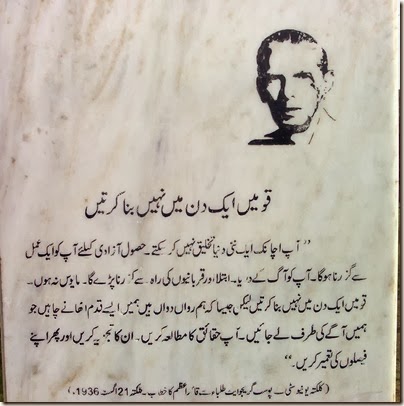 قومیں ایک دن میں نہیں بنا کرتیں
”آپ اچانک ایک نئی دنیا تخلیق نہیں کر سکتے۔ حصول آزادی کیلئے آپ کو ایک عمل
سے گزرنا ہوگا۔ آپ کو آگ کے دریا۔ ابتلا اور قربانیوں کی راہ سے گزرنا پڑے گا۔ مایوس نہ ہوں۔
قومیں ایک دن میں نہیں بنا کرتیں لیکن جیسا کہ ہم رواں دواں ہیں ہمیں ایسے قدم اٹھانے چاہیں جو
ہمیں آگے کی طرف لے جائیں۔ آپ حقائق کا مطالعہ کریں۔ ان کا تجزیہ کریں اور پھر اپنے
فیصلوں کی تعمیر کریں۔“
(کلکتہ یونیورسٹی کے پوسٹ گریجوایٹ طلباء سے قائداعظم کا خطاب۔ کلکتہ 21 اگست 1936ء)